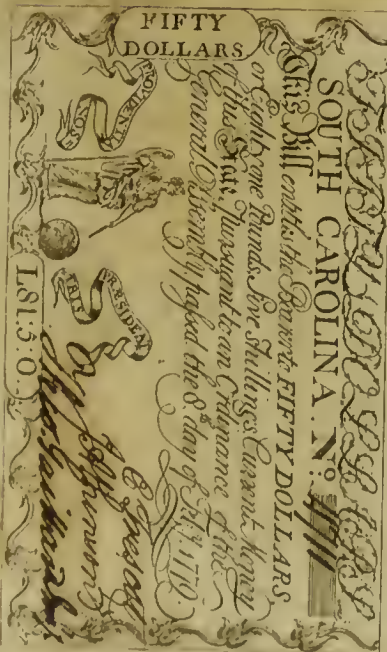 FIFTY
DOLLARS
SOUTH CAROLINA. No.
This Bill entitles the Bearer to FIFTY DOLLARS
or Eighty one Pounds, five Shillings Current Money
of this State, Pursuant to an Ordinance of the
General Assembly, passed the 8th day of 1776
PROVIDENTIÆ NOSTRIS
PRÆSIDEAT
L81.5.0.